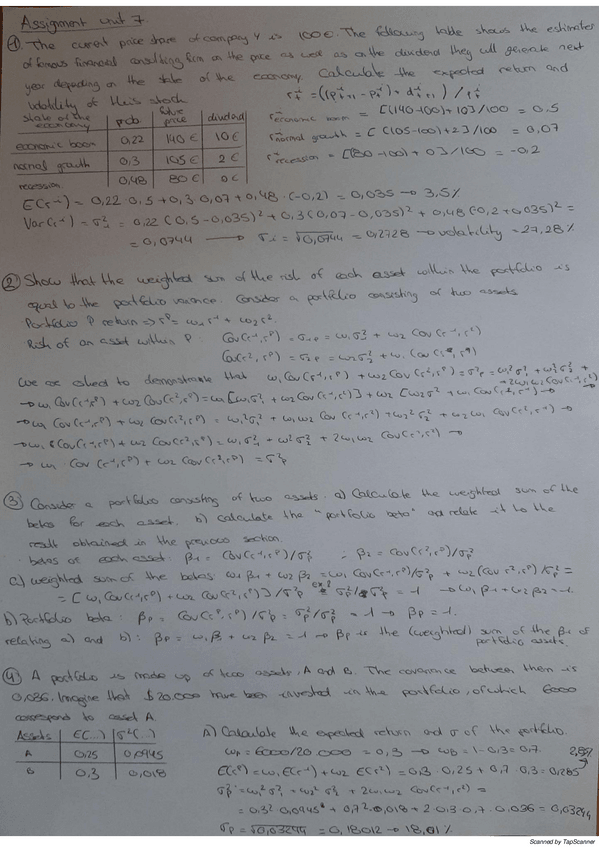 Assignment unit 7
① The current price share of company Y is 100€. The following table shows the estimates
of famous financial consulting firm on the price as well as on the dividend they will generate next
year depending on the state of the economy. Calculate the expected return and
volatility of this stock
state of the economy | prob | future price | dividend
economic boom | 0,22 | 140 € | 10 €
normal growth | 0,3 | 105 € | 2 €
recession | 0,48 | 80 € | 0 €
r economic boom = [(140-100)+10]/100 = 0.5
r normal growth = [(105-100)+2]/100 = 0,07
r recession = [(80-100)+0]/100 = -0,2
E(r¹) = 0,22 0.5 + 0,3 0,07 + 0,48 · (-0,2) = 0,035 → 3,5%
Var(r¹) = σ²₁ = 0,22 (0.5-0,035)² + 0,3 (0,07-0,035)² + 0,48 (-0,2+0,035)² =
= 0,0744 → σ₁ = √0,0744 = 0,2728 → volatility = 27,28%
② Show that the weighted sum of the risk of each asset within the portfolio is
equal to the portfolio variance. Consider a portfolio consisting of two assets
Portfolio P return => rᴾ = ω₁r¹ + ω₂r².
Risk of an asset within P: Cov(r¹,rᴾ) = σ₁ₚ = ω₁σ²₁ + ω₂ Cov(r¹,r²)
We are asked to demonstrate that ω₁Cov(r¹,rᴾ) + ω₂ Cov(r²,rᴾ) = σ²ₚ = ω₁²σ²₁ + ω₂²σ²₂ + 2ω₁ω₂Cov(r¹,r²)
→ ω₁ · Cov(r¹,rᴾ) + ω₂ Cov(r²,rᴾ) = σ²ₚ
③ Consider a portfolio consisting of two assets. a) Calculate the weighted sum of the
betas for each asset. b) calculate the "portfolio beta" and relate it to the
result obtained in the previous section.
betas of each asset: β₁ = Cov(r¹,rᴾ)/σ²ₚ ; β₂ = Cov(r²,rᴾ)/σ²ₚ
a) weighted sum of the betas: ω₁β₁ + ω₂β₂ = ω₁ Cov(r¹,rᴾ)/σ²ₚ + ω₂(Cov(r²,rᴾ)/σ²ₚ =
= [ω₁Cov(r¹,rᴾ) + ω₂ Cov(r²,rᴾ)]/σ²ₚ ex.2 σ²ₚ/σ²ₚ = 1 → ω₁β₁ + ω₂β₂ = 1.
b) Portfolio beta: βₚ = Cov(rᴾ,rᴾ)/σ²ₚ = σ²ₚ/σ²ₚ = 1 → βₚ = 1.
relating a) and b): βₚ = ω₁β₁ + ω₂β₂ = 1 → βₚ is the (weighted) sum of the βs of portfolio assets.
④ A portfolio is made up of two assets, A and B. The covariance between them is
0,036. Imagine that $20.000 have been invested in the portfolio, of which 6000
correspond to asset A.
Assets | E(..) | σ²(..)
A | 0,25 | 0,0945
B | 0,3 | 0,018
A) Calculate the expected return and σ of the portfolio.
ωA = 6000/20.000 = 0,3 → ωB = 1-0.3 = 0.7.
E(rᴾ) = ω₁E(r¹) + ω₂ E(r²) = 0,3 · 0,25 + 0,7 · 0,3 = 0,285
σ²ₚ = ω₁²σ²₁ + ω₂² σ²₂ + 2ω₁ω₂ Cov(r¹,r²) =
= 0.3² 0,0945 + 0,7² · 0,018 + 2 · 0.3 · 0.7 · 0.036 = 0,03244
σₚ = √0,03244 = 0,18012 → 18,01%
Scanned by TapScanner